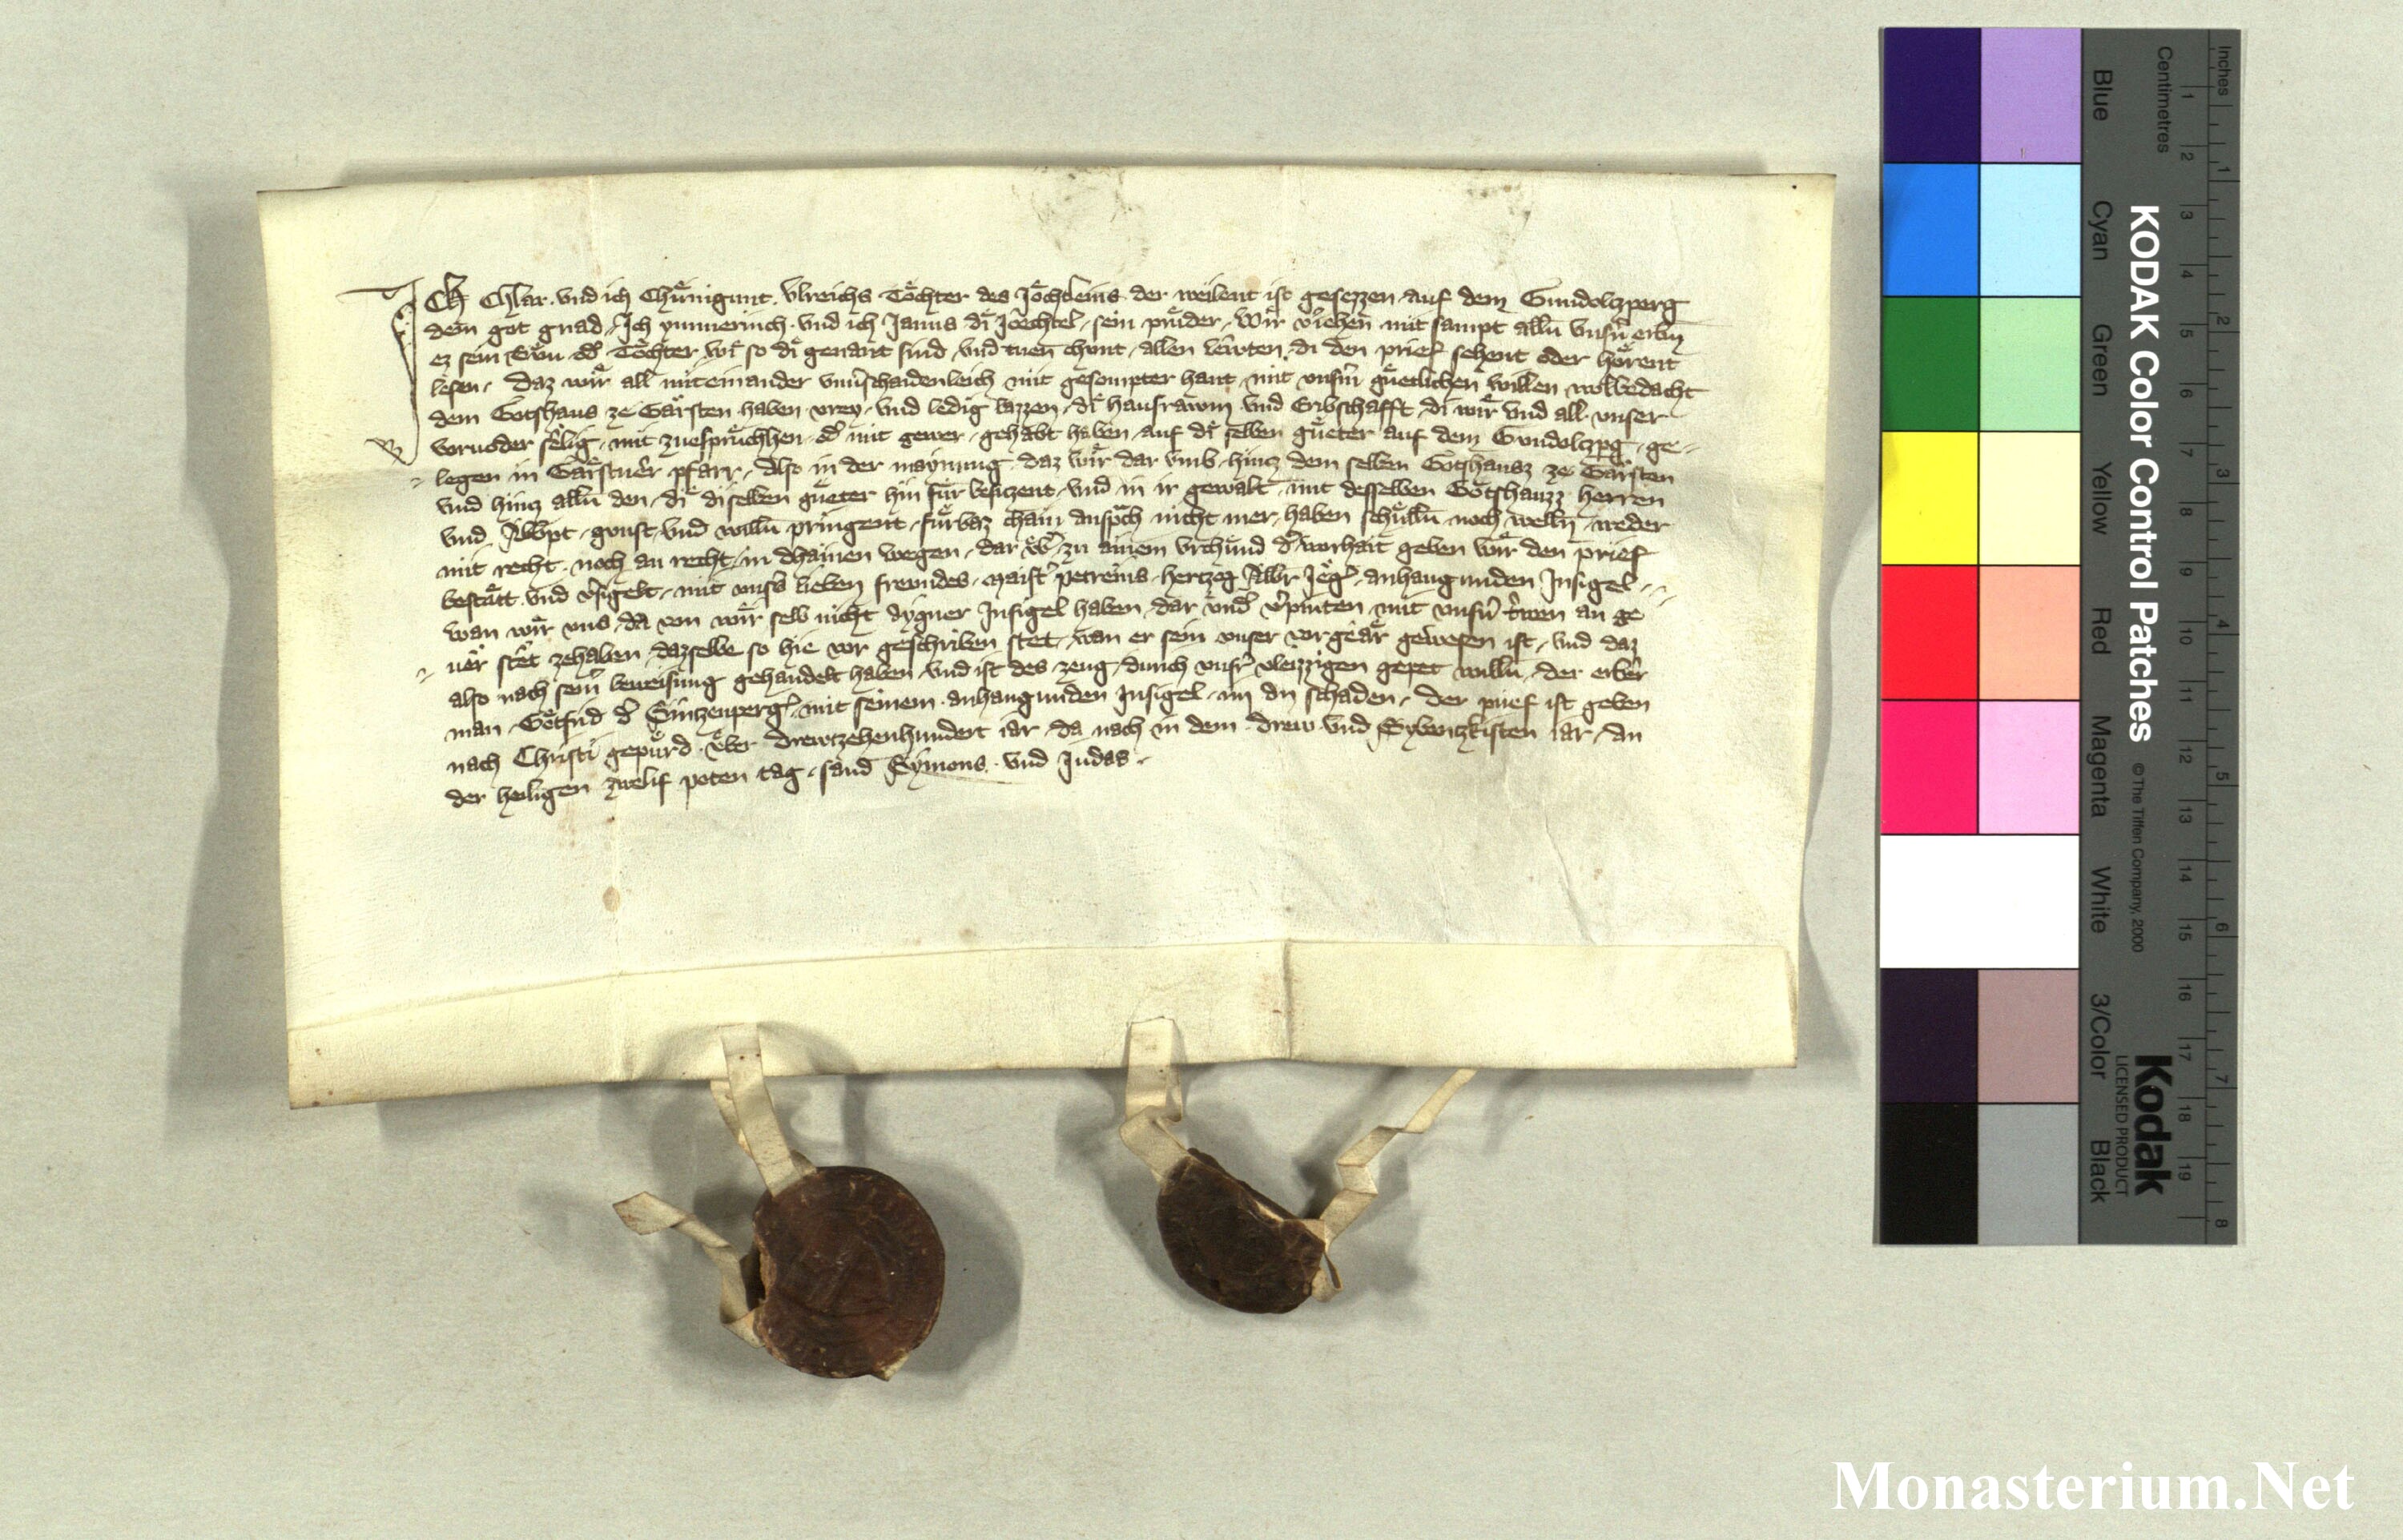 Ich Chlar vnd ich Chuͤnigunt Vlreichs Toͤchter des Joͤchleins der weilent ist gesezzen auf dem Gundolczperg
dem got gnad Ich ymmerinch vnd ich Janns di sein pruͤder Wiͤr mit sampt alln vnsn erbn
ez sein Suͤn od Toͤchter wi so di genant sind vnd tuen chunt allen laͤwten di den prief sehent oder hoͤrent
lesen daz wiͤr all miteinander vnuschaidenleich mit gesampter hant mit vnsm guͤetlichen willen wolbedacht
dem Gotshaus ze Gaͤrsten haben vrey vnd ledig lazzen diͤ haufrawm vnd Erbschafft di wiͤr vnd all vnser
voruoder seͤlig mit zuespruͤchhen od mit gewer gehabt haben auf diͤ selben guͤeter auf dem Gundolczpg ge
legen in Gaͤrstner pfarr Also in der maynung daz wiͤr dar vmb hincz dem selben Gotshausz ze Gaͤrsten
vnd hincz alln den diͤ diselben guͤeter hin fuͤr besiczent vnd in ir gewalt mit desselben Gotshauzz herren
vnd Abbpt gunst vnd willn pringent fuͤrbaz chain anspͣch nicht mer haben schuͤlln noch welln weder
mit recht noch an recht in dhainen wegen dar vͤb zu ainem vrchuͤnd d worhait geben wiͤr den prief
bestaͤtt vnd vsigelt mit vnss lieben freundes Maist petreins herczog Albr Jeͤg anhangunden Insigel
wan wiͤr vns da von wiͤr selb nicht aygner Insigel haben dar vnd vpinten mit vnsn trwen an ge
uer steͤt zehaben dazselbe so hie vor geschriben stet wan er sein vnser vorgeaͤr gewesen ist vnd daz
also nach seim beweisung gehandelt haben vnd ist des zeug durch vnsr vleizzigen gepet willn der erber
man Goͤtfrid d Sinczenperg mit seinem anhangunden Insigel im an schaden der prief ist geben
nach Christi gepuͤrd vͤber Drewczehenhundert iar da nach in dem drew vnd Sybenczkisten iar an
der heiligen zwelif poten tag sand Symons vnd Judas
Inches
Centimetres
1 2 3 4 5 6 7 8 9 10 11 12 13 14 15 16 17 18 19
1 2 3 4 5 6 7 8
Blue Cyan Green Yellow Red Magenta White 3/Color Black
KODAK Color Control Patches
© The Tiffen Company, 2000
Kodak
LICENSED PRODUCT
Monasterium.Net